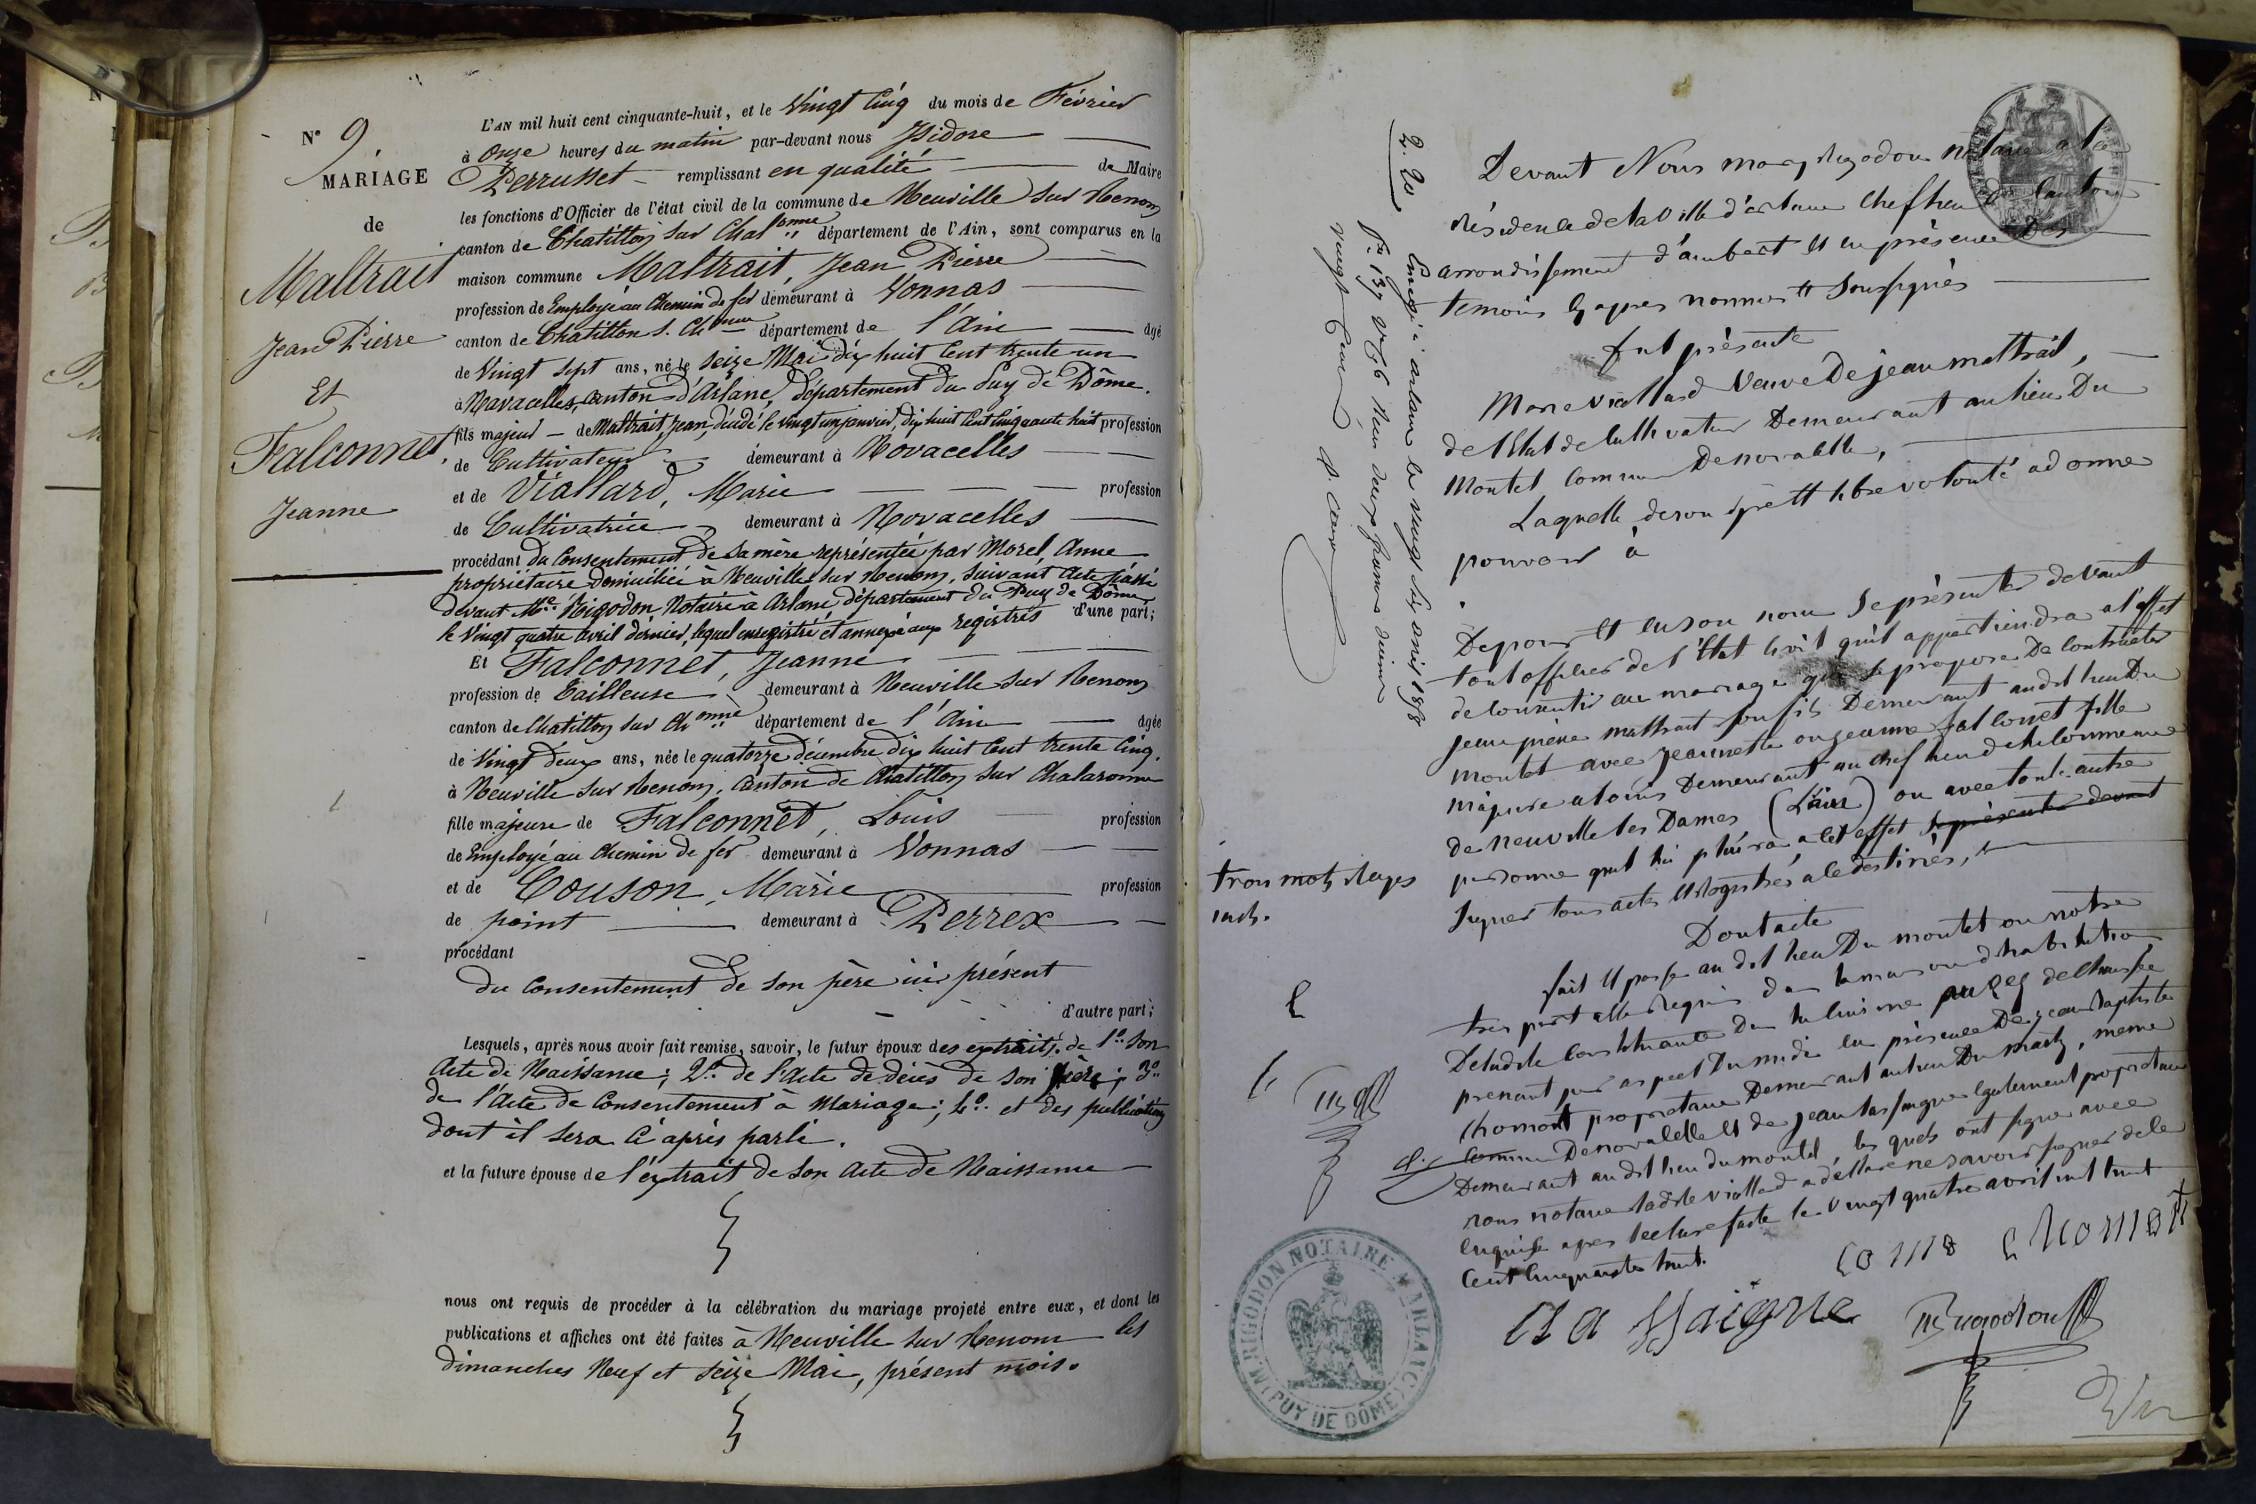 N° 9
MARIAGE
de
Maltrait
Jean Pierre
Et
Falconnet,
Jeanne
L'AN mil huit cent cinquante-huit, et le Vingt Cinq du mois de Février
à Onze heures du matin par-devant nous Isidore
Perrusset remplissant en qualité de Maire
les fonctions d'Officier de l'état civil de la commune de Neuville sur Renom
canton de Chatillon sur Chalonne département de l'Ain, sont comparus en la
maison commune Maltrait, Jean Pierre
profession de Employé au Chemin de fer demeurant à Vonnas
canton de Chatillon s. Chonne département de l'Ain âgé
de Vingt sept ans, né le seize Mai dix huit Cent trente un
à Novacelles, canton d'Arlanc, département du Puy de Dôme.
fils majeur de Maltrait, Jean, décédé le vingt un janvier, dix huit Cent Cinquante huit profession
de Cultivateur demeurant à Novacelles
et de Viallard, Marie profession
de Cultivatrice demeurant à Novacelles
procédant du Consentement de sa mère représentée par Morel, Anne
propriétaire domiciliée à Neuville sur Renom, suivant acte passé
devant Me Rigodon Notaire à Arlanc, département du Puy de Dôme
le Vingt quatre avril dernier, lequel enregistré et annexé aux registres d'une part;
Et Falconnet, Jeanne
profession de Tailleuse demeurant à Neuville sur Renom
canton de Chatillon sur Chonne département de l'Ain âgée
de Vingt deux ans, née le quatorze décembre dix huit Cent trente Cinq,
à Neuville sur Renom, Canton de Chatillon sur Chalaronne
fille majeure de Falconnet, Louis profession
de Employé au Chemin de fer demeurant à Vonnas
et de Couson, Marie profession
de point demeurant à Perrex
procédant
du Consentement de son père ici présent
d'autre part;
Lesquels, après nous avoir fait remise, savoir, le futur époux des extraits, de 1° son
Acte de Naissance; 2° de l'Acte de décès de son père; 3°
de l'Acte de Consentement à Mariage; 4° et des publications
dont il sera Ci après parlé.
et la future épouse de l'extrait de son Acte de Naissance
nous ont requis de procéder à la célébration du mariage projeté entre eux, et dont les
publications et affiches ont été faites à Neuville sur Renom les
dimanches Neuf et seize Mai, présent mois.
2. 20
Enregé à arlanc le vingt six avril 1858
fo 137 vo Reçu deux francs décime
vingt
Devant Nous marc, rigodon notaire a la
résidence de la ville d'arlanc chef lieu de Canton
arrondissement d'ambert et en présence des
temoins cy apres nommés et soussignés
fut présente
Marie viallard veuve de jean maltrait,
de l'état de cultivateur Demeurant au lieu Du
Montel commune De novacelle,
Laquelle, de son gré et libre volonté a donné
pouvoir à
De pour et en son nom se présenter devant
tout officier de l'état civil qu'il appartiendra a l'effet
de consentir au mariage que se propose De contracter
jean pierre maltrait son fils Demeurant audit lieu Du
montel avec jeannette ou jeanne falconet fille
majeure a louis Demeurant au chef lieu de la commune
de neuville les Dames (L'ain) ou avec toute autre
personne qu'il lui plaira, a cet effet se présenter devant
signer tous actes et registres a ce destinés,
Dont acte
fait et passé au dit lieu Du montel ou notre
De ladite constituante au rez de chaussée
prenant jour aspect du midi en présence De jean Baptiste
Chomont propriétaire Demeurant au lieu Du , meme
commune De novacelle et de jean lassaigne également propriétaire
Demeurant au dit lieu du montel, les quels ont signé avec
nous notaire ladite viallard a déclaré ne savoir signer de ce
enquise apres lecture faite le vingt quatre avril mil huit
Cent Cinquante huit.
trois mots rayés
nuls.
Chomont
lassaigne
Rigodon
M. RIGODON NOTAIRE A ARLANC
(PUY DE DÔME)